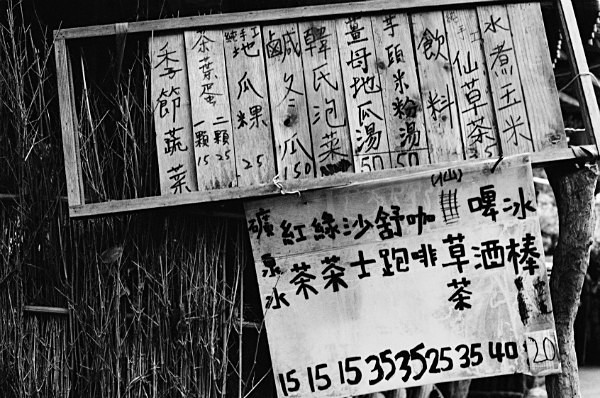 水煮玉米
純手工仙草茶 35
飲料
芋頭米粉湯 50
薑母地瓜湯 50
韓氏泡菜
鹹冬瓜 150
純手工地瓜粿 25
茶葉蛋 一顆15 二顆25
季節蔬菜
冰棒 20
啤酒 40
(仙)草茶 35
咖啡 25
舒跑 35
沙士 35
綠茶 15
紅茶 15
礦泉水 15